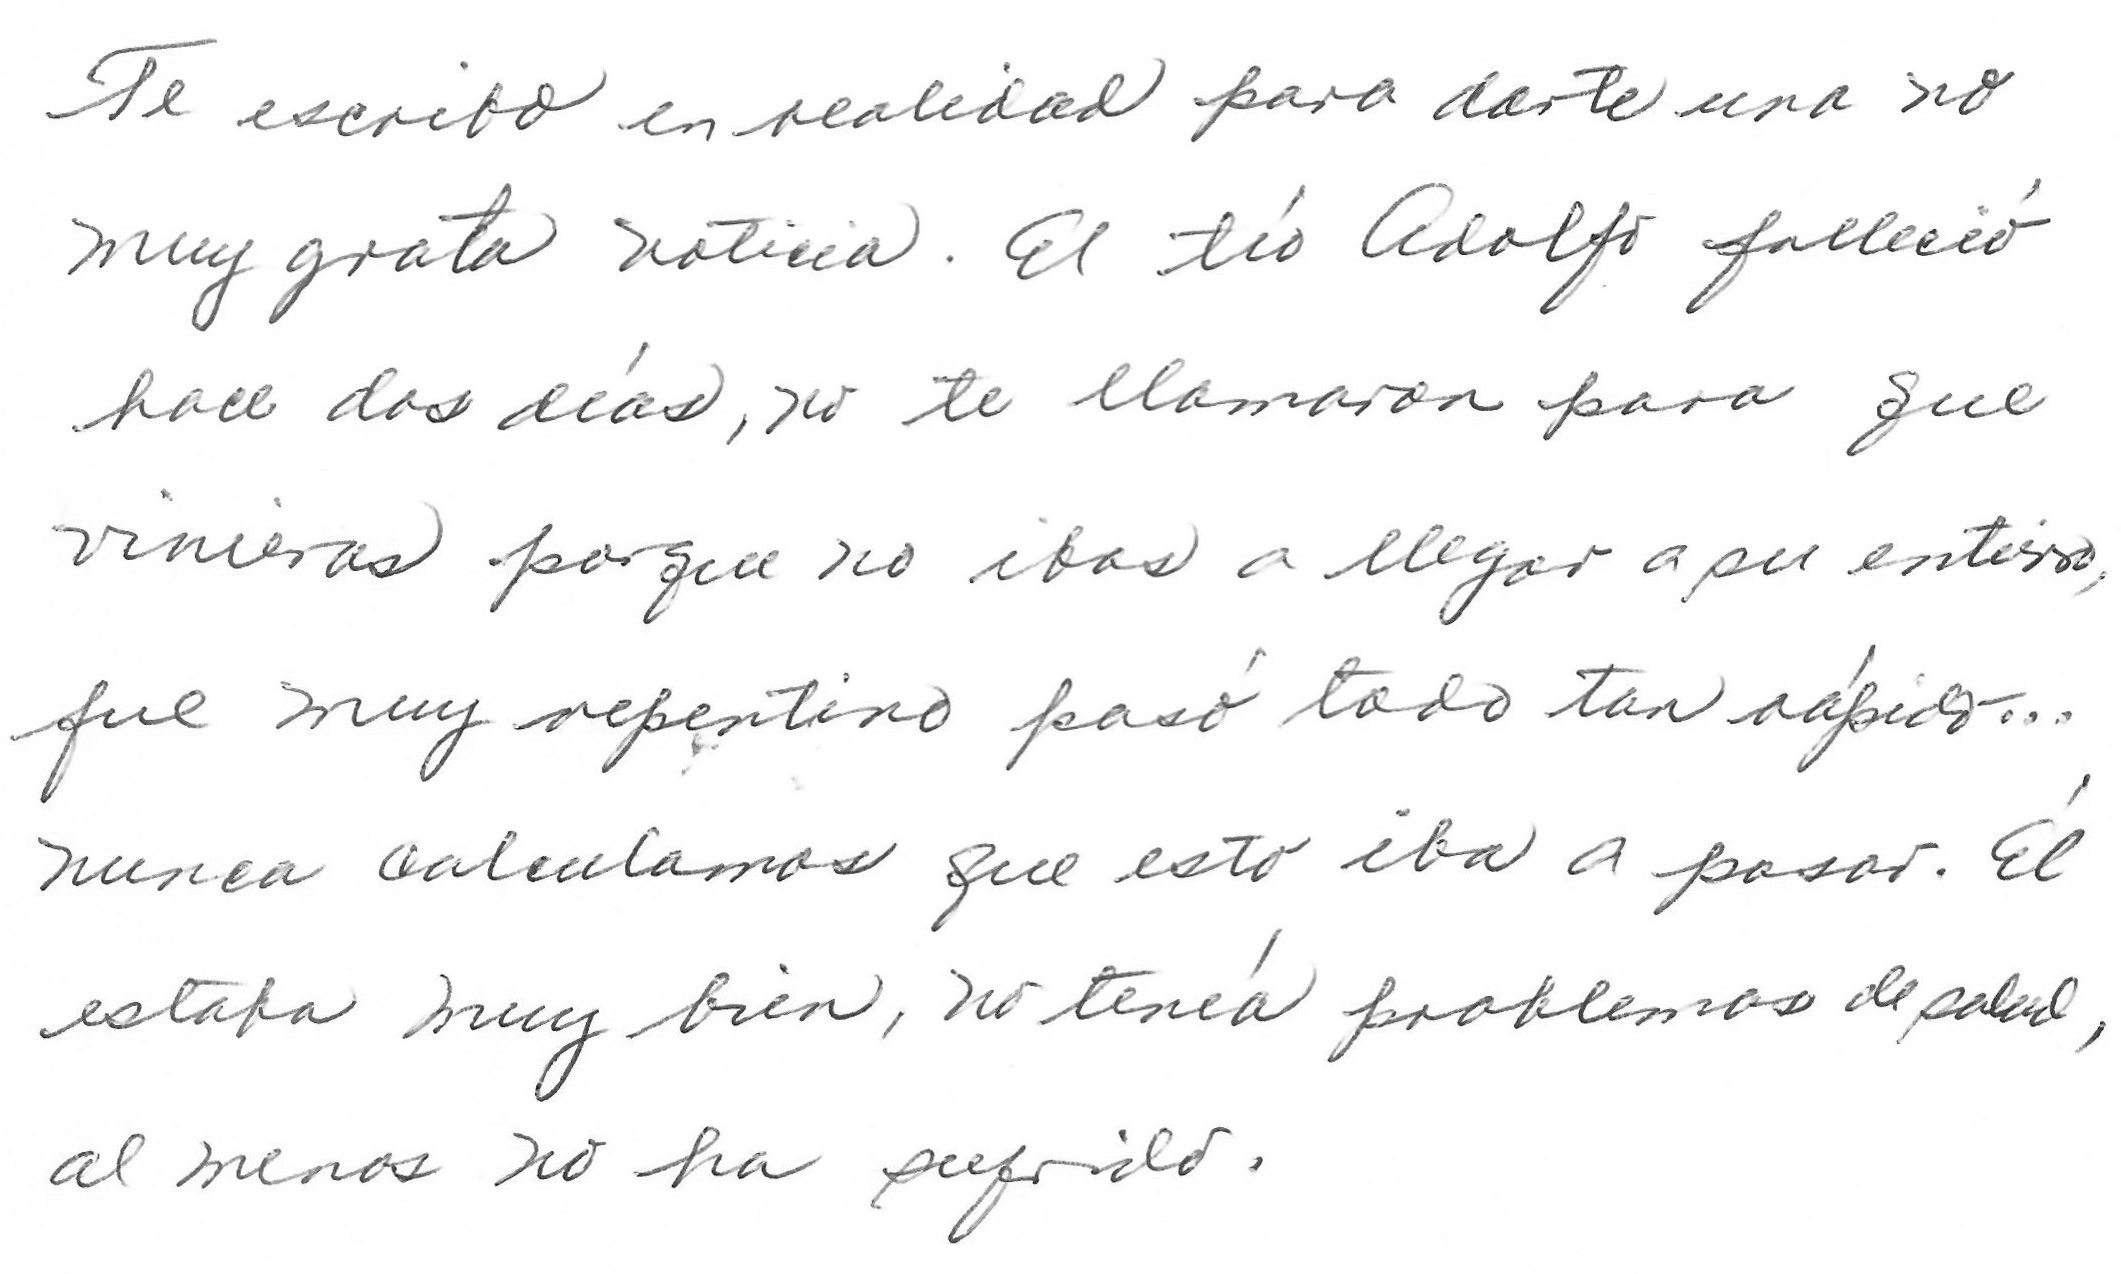 Te escribo en realidad para darte una no
muy grata noticia. El tío Adolfo falleció
hace dos días, no te llamaron para que
vinieras porque no ibas a llegar a su entierro,
fue muy repentino pasó todo tan rápido...
nunca calculamos que esto iba a pasar. Él
estaba muy bien, no tenía problemas de salud,
al menos no ha sufrido.